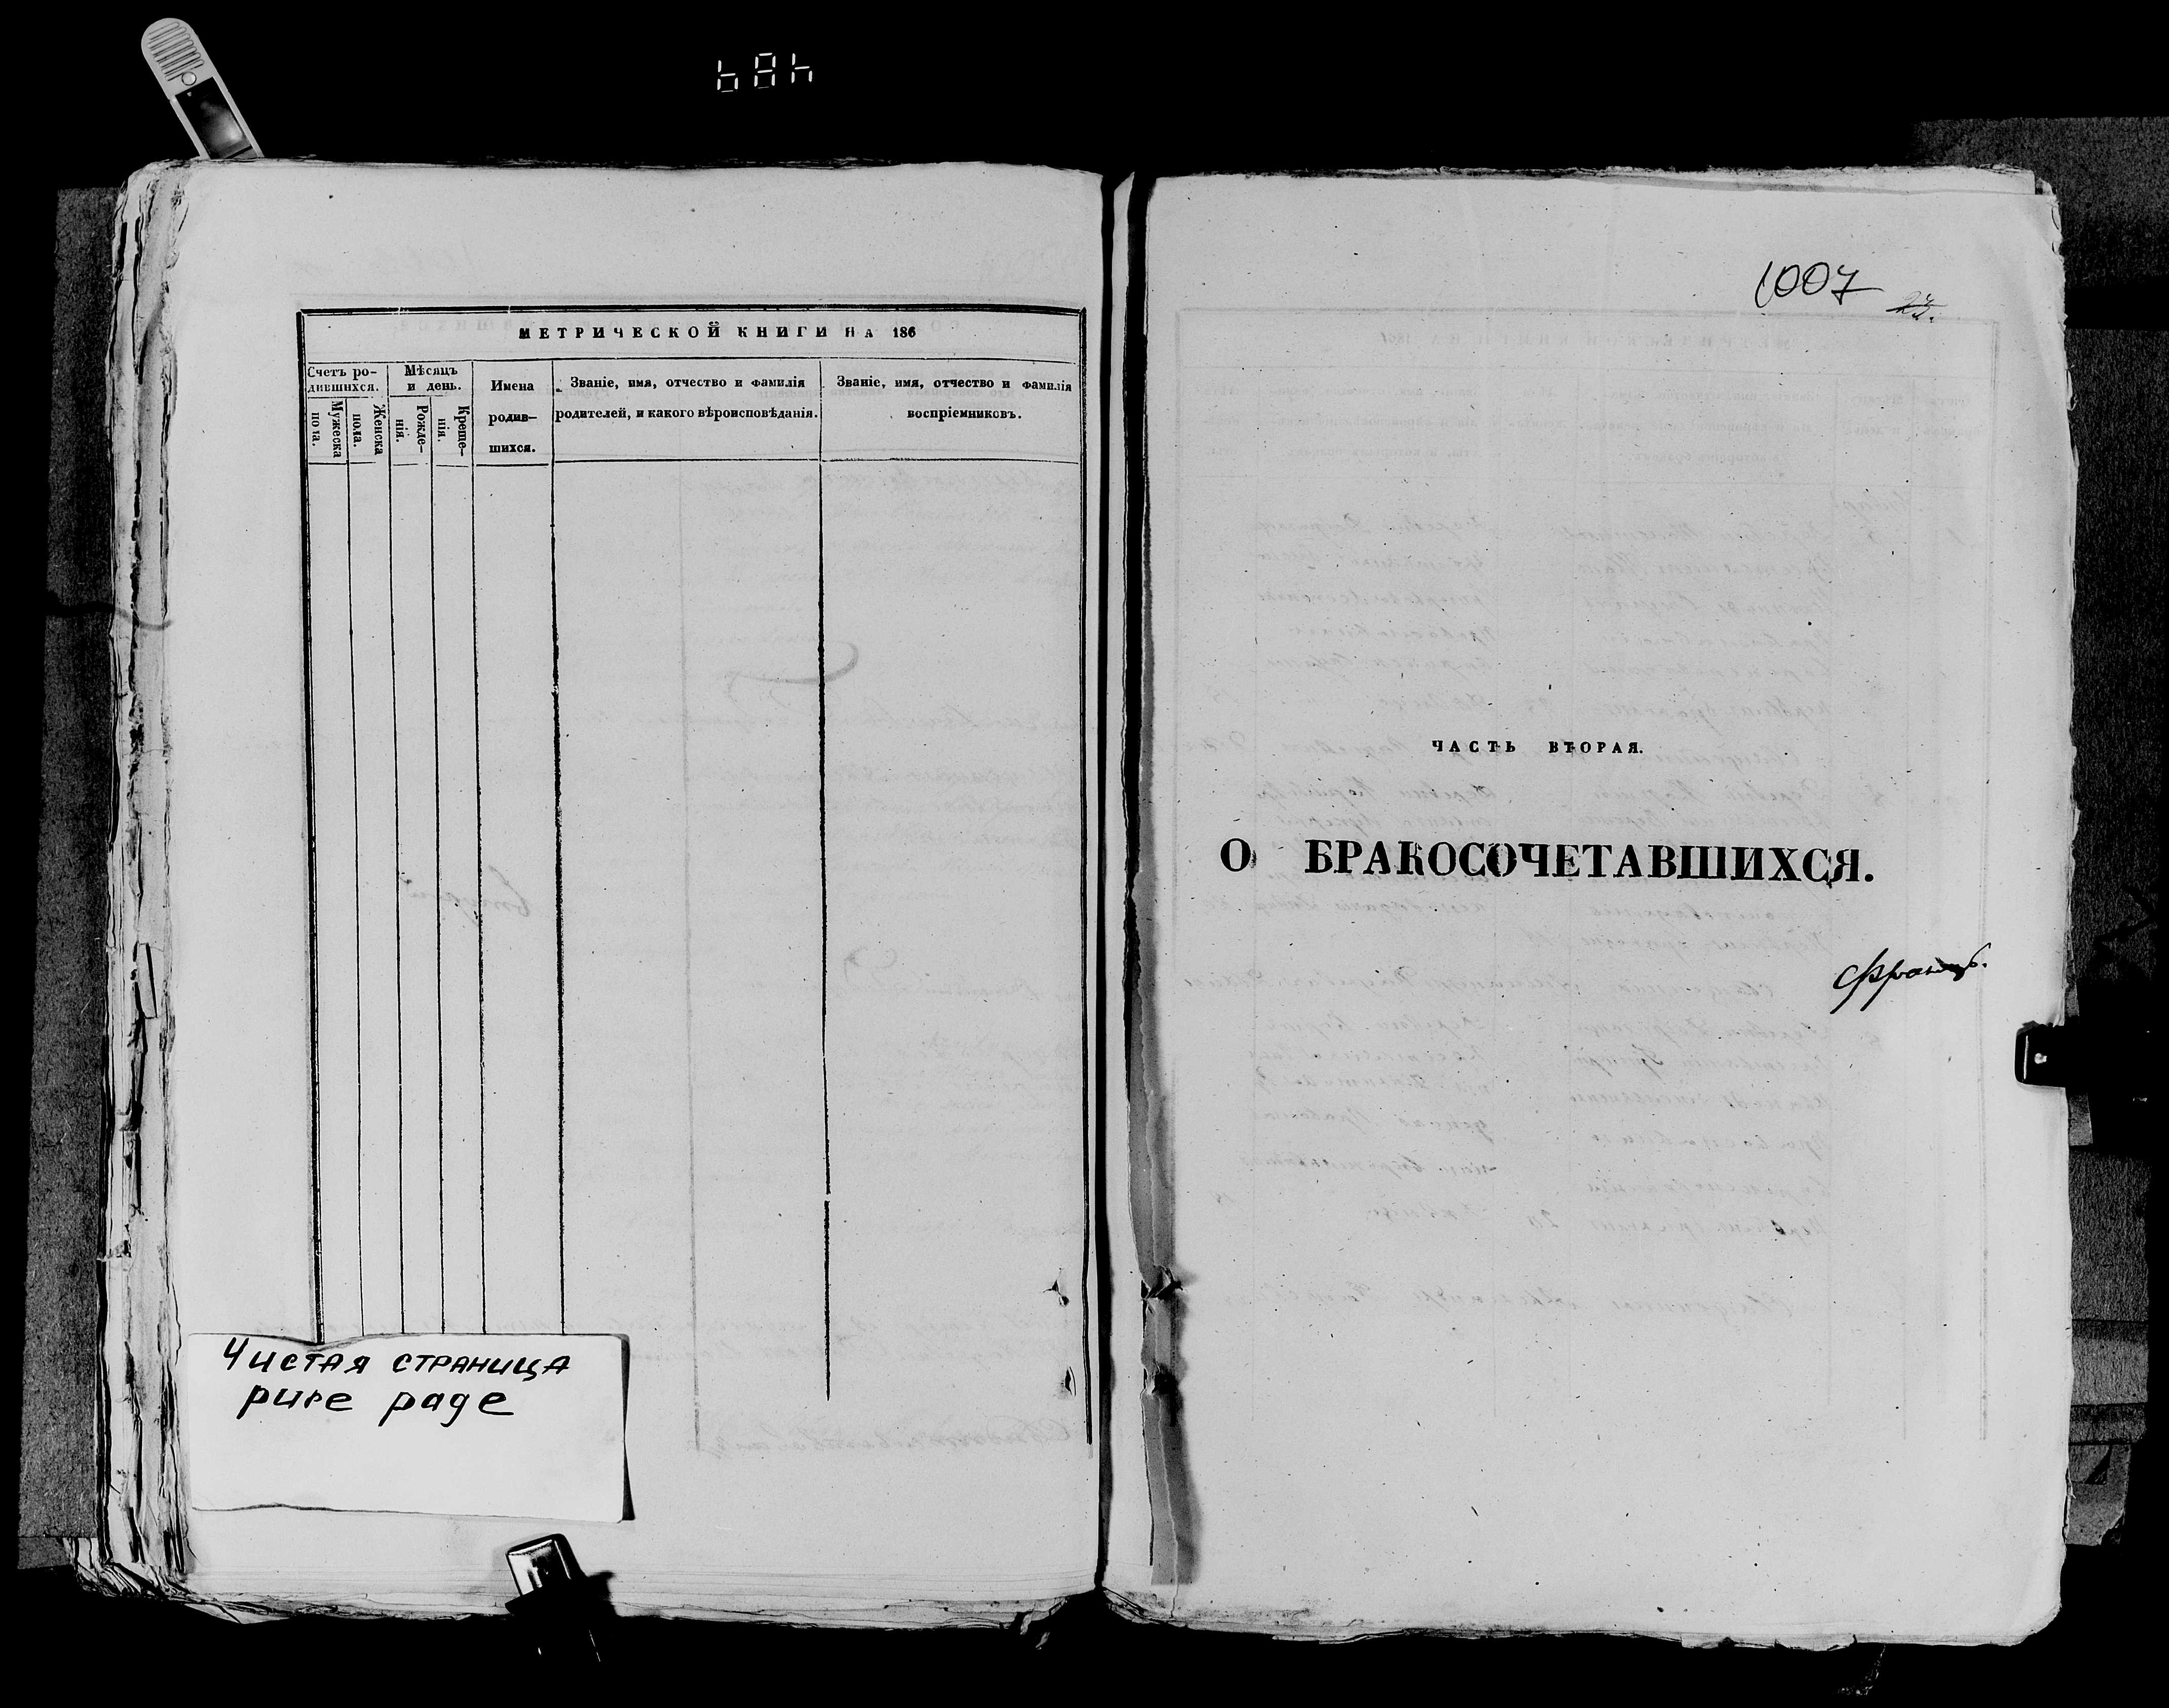 МЕТРИЧЕСКОЙ КНИГИ НА 186
Счетъ ро-
дившихся.
Мужеска
пола.
Женска
пола.
Мѣсяцъ
и день.
Рожде-
нія.
Креще-
нія.
Имена
родив-
шихся.
Званіе, имя, отчество и фамилія
родителей, и какого вѣроисповѣданія.
Званіе, имя, отчество и фамилія
воспріемниковъ.
Чистая страница
pure page
1007
ЧАСТЬ ВТОРАЯ.
О БРАКОСОЧЕТАВШИХСЯ.